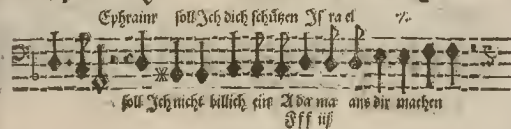 Ephraim soll Ich dich schützen Is ra el
soll Ich nicht billich ein Ada ma aus dir machen
Iff iij